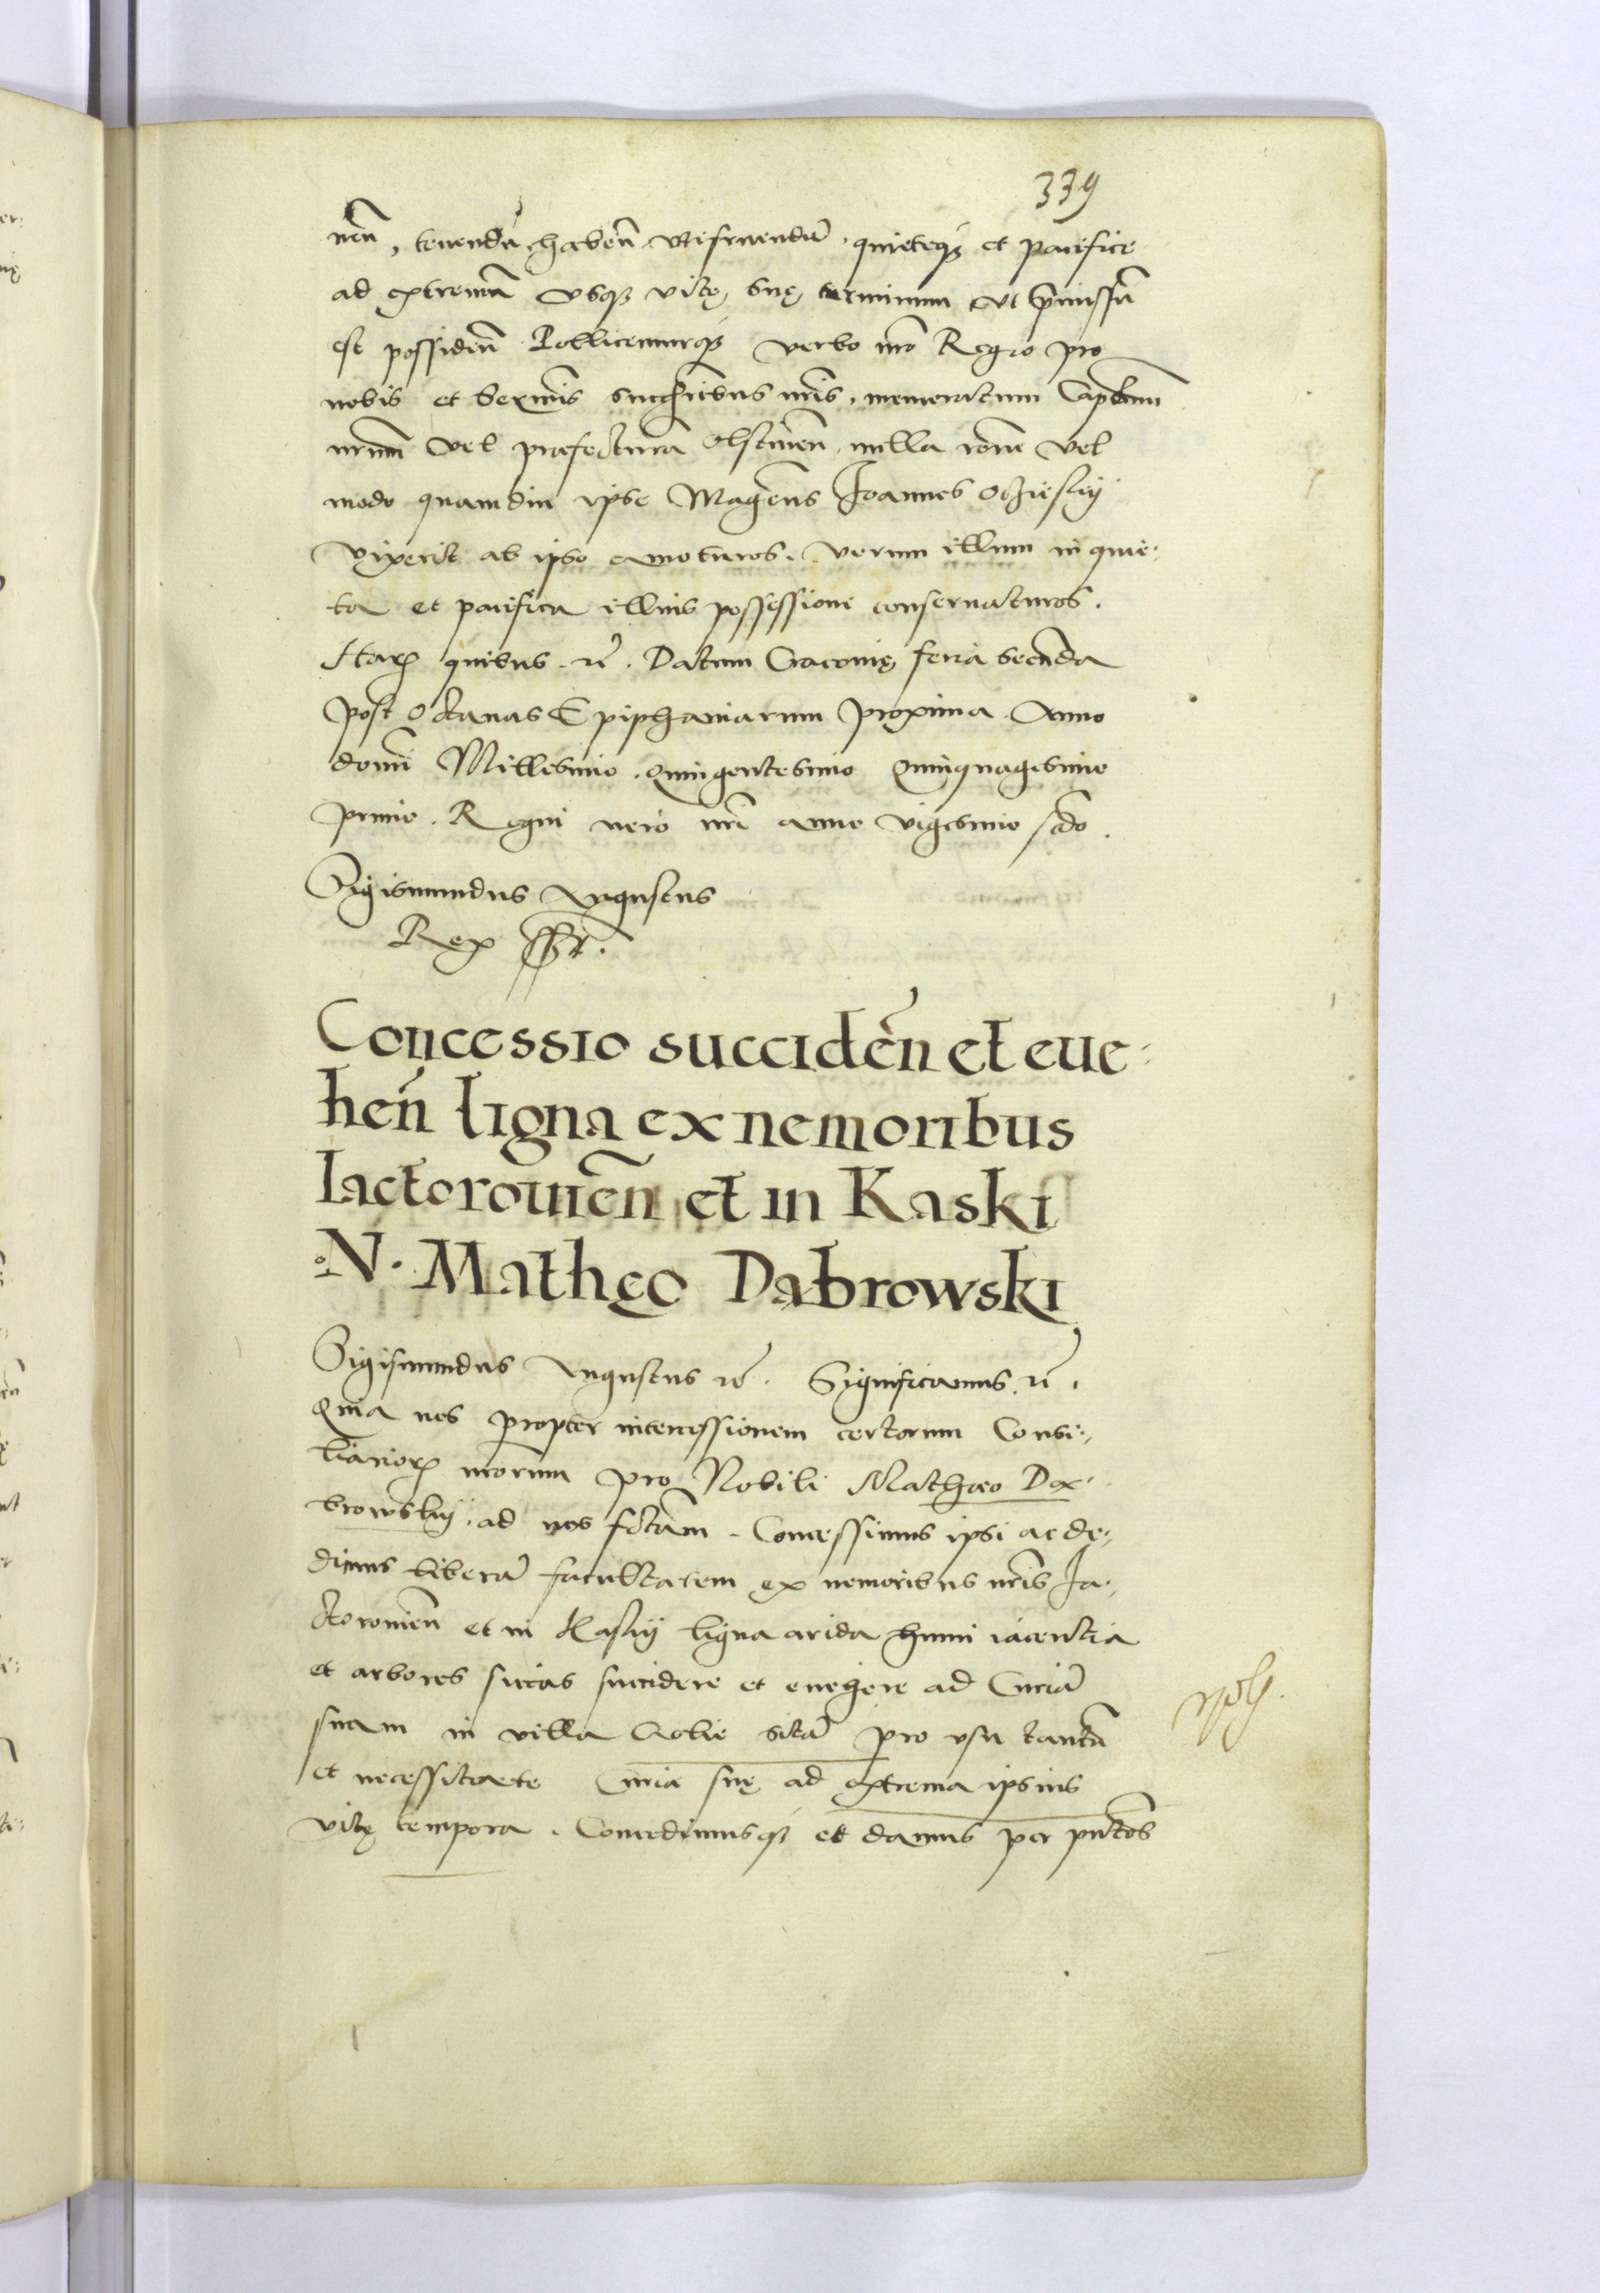 339
nen̄, tenendū haben̄ utifruendū quieteq₃ et pacifice
ad extremū usq₃ vitę suę terminum ut p̄missū
est possiden̄ Pollicemurq₃ verbo nr̄o Regio pro
nobis et Serenis successoribus nr̄is, memoratum Capitm̄
nrum̄ vel præfecturā Olstinen̄, nulla rōne vel
modo quamdiu ipse Magcus Joannes Oczieskij
vixerit ab ipso amoturos. Verum illum in quie-
ta et pacifica illius possessione conseruaturos.
Harꝝ quibus &c̄. Datum Cracouię feria secūda
post Octauas Epiphaniarum proxima. Anno
domi Millesimo Quingentesimo Quinquagesimo
primo. Regni vero nr̄i anno vigesimo scd̄o.
Sigismundus Augustus
Rex sst.
Concessio succiden̄ et eue-
hen̄ ligna ex nemoribus
Iactorouien̄ et in Kaski
N. Mathęo Dabrowski
Sigismundus Augustus &c̄. Significamus &c̄.
Quia nos propter intercessionem certorum Consi-
liarioꝝ nrorum pro Nobili Mathæo Dą-
browskij ad nos fctam̄. Concessimus ipsi ac de-
dimus liberā facultatem ex nemoribus nr̄is Ia-
ctorouien̄ et in Kaskij ligna arida humi iacentia
et arbores siccas succidere et euegere ad Curiā
suam in villa Czobie sitā pro usu tantū
et necessitate Curiæ suę ad extrema ipsius
vitę tempora. Concedimusq₃ et damus per pn̄tes